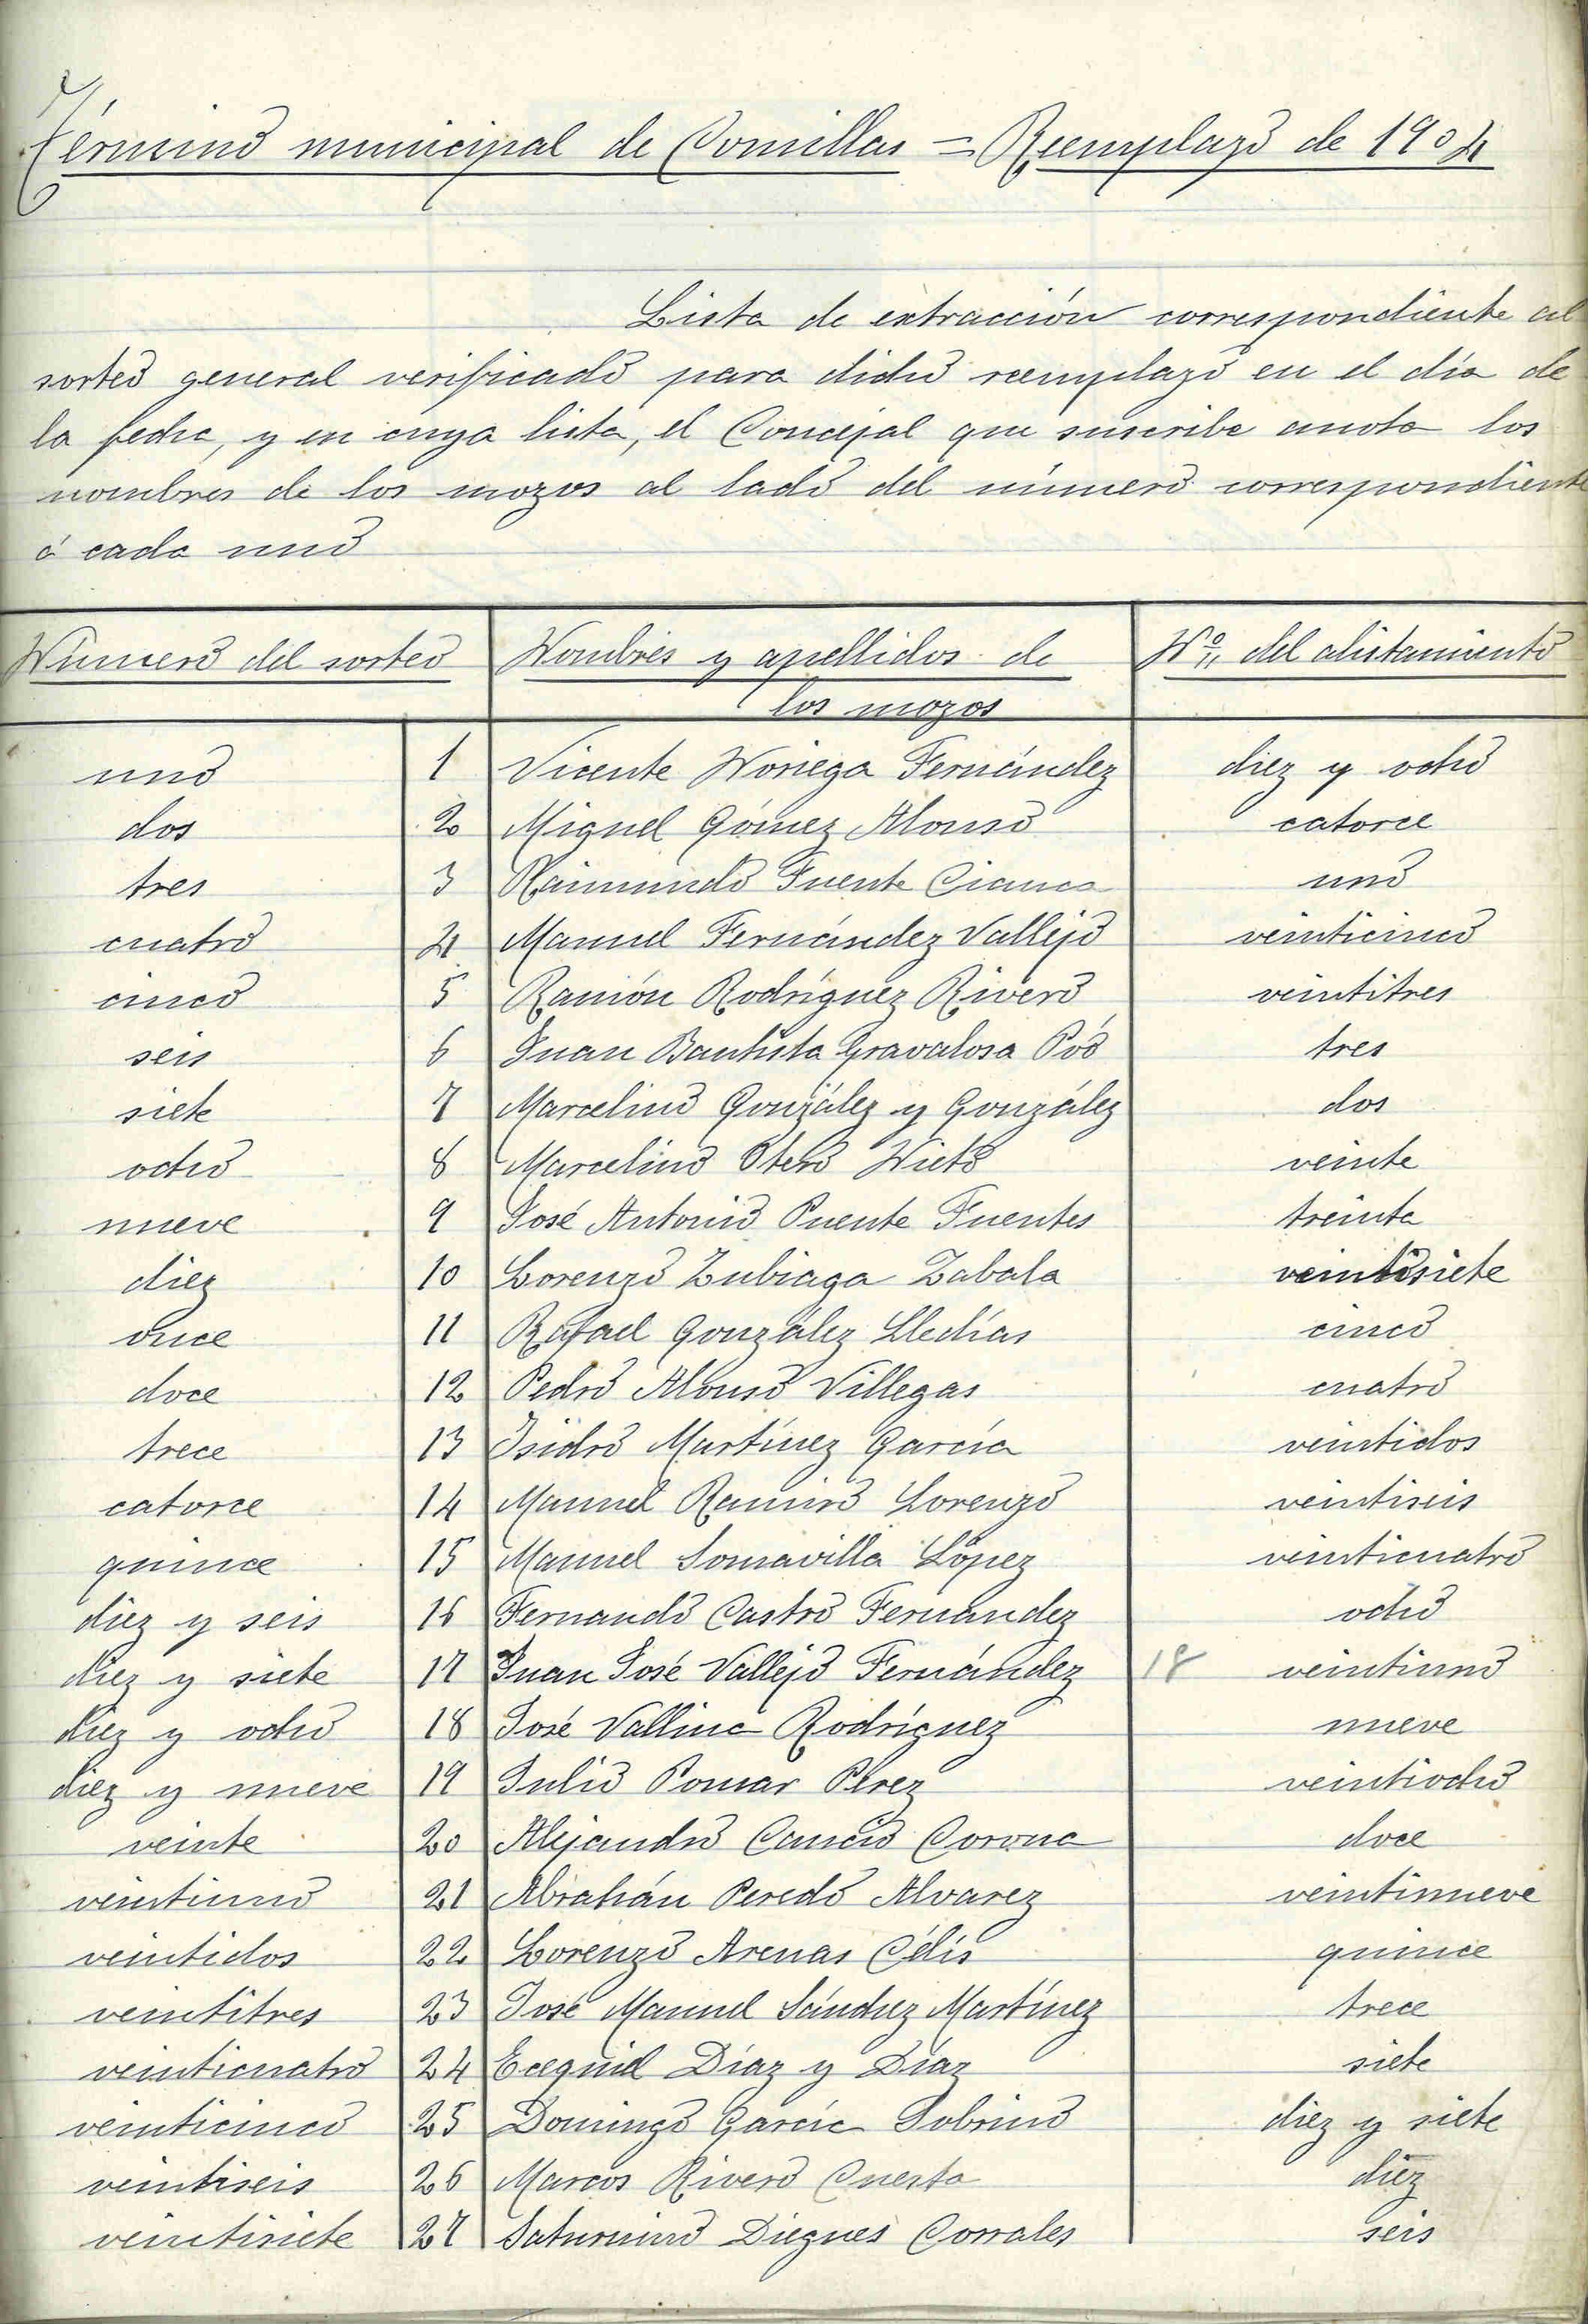 Término municipal de Comillas = Reemplazo de 1904
Lista de extracción correspondiente al
sorteo general verificado para dicho reemplazo en el día de
la fecha, y en cuya lista, el Concejal que suscribe anota los
nombres de los mozos al lado del número correspondiente
á cada uno
Número del sorteo Nombres y apellidos de Nº del alistamiento
los mozos
uno 1 Vicente Noriega Fernández diez y ocho
dos 2 Miguel Gómez Alonso catorce
tres 3 Raimundo Fuente Cianca uno
cuatro 4 Manuel Fernández Vallejo veinticinco
cinco 5 Ramón Rodríguez Rivero veintitres
seis 6 Juan Bautista Gravalosa Póo tres
siete 7 Marcelino González y González dos
ocho 8 Marcelino Otero Nieto veinte
nueve 9 José Antonio Puente Fuentes treinta
diez 10 Lorenzo Zubiaga Zabala veintisiete
once 11 Rafael González Lledías cinco
doce 12 Pedro Alonso Villegas cuatro
trece 13 Isidro Martínez García veintidos
catorce 14 Manuel Ramiro Lorenzo veintiseis
quince 15 Manuel Somavilla López veinticuatro
diez y seis 16 Fernando Castro Fernández ocho
diez y siete 17 Juan José Vallejo Fernández 18 veintiuno
diez y ocho 18 José Vallina Rodríguez nueve
diez y nueve 19 Julio Pomar Pérez veintiocho
veinte 20 Alejandro Cancio Corona doce
veintiuno 21 Abrahán Peredo Alvarez veintinueve
veintidos 22 Lorenzo Arenas Célis quince
veintitres 23 José Manuel Sánchez Martínez trece
veinticuatro 24 Ecequiel Díaz y Díaz siete
veinticinco 25 Domingo García Sobrino diez y siete
veintiseis 26 Marcos Rivero Cuesta diez
veintisiete 27 Saturnino Diegues Corrales seis